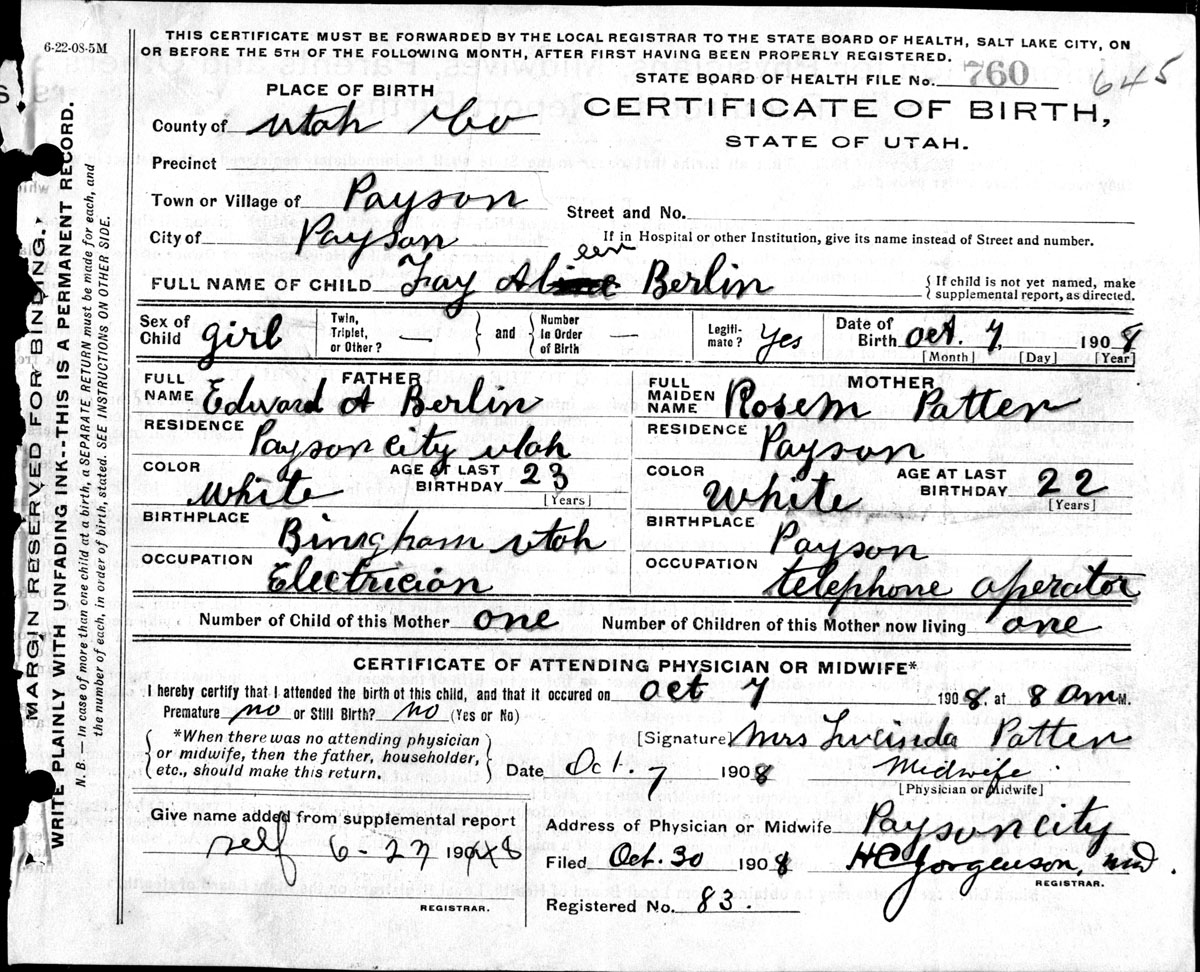 6-22-08-5M
THIS CERTIFICATE MUST BE FORWARDED BY THE LOCAL REGISTRAR TO THE STATE BOARD OF HEALTH, SALT LAKE CITY, ON
OR BEFORE THE 5TH OF THE FOLLOWING MONTH, AFTER FIRST HAVING BEEN PROPERLY REGISTERED.
STATE BOARD OF HEALTH FILE No. 760 645
PLACE OF BIRTH
CERTIFICATE OF BIRTH,
STATE OF UTAH.
County of Utah Co
Precinct
Town or Village of Payson
Street and No.
City of Payson
If in Hospital or other Institution, give its name instead of Street and number.
een
FULL NAME OF CHILD Fay Berlin
{ If child is not yet named, make
{ supplemental report, as directed.
Sex of Child girl
Twin, Triplet, or Other? —
and
Number In Order of Birth —
Legiti- mate? Yes
Date of Birth Oct. 7, 1908
[Month] [Day] [Year]
FATHER
FULL NAME Edward A Berlin
RESIDENCE Payson city utah
COLOR White
AGE AT LAST BIRTHDAY 23
[Years]
BIRTHPLACE Bingham utah
OCCUPATION Electrician
MOTHER
FULL MAIDEN NAME Rosem Patten
RESIDENCE Payson
COLOR White
AGE AT LAST BIRTHDAY 22
[Years]
BIRTHPLACE Payson
OCCUPATION telephone operator
Number of Child of this Mother one Number of Children of this Mother now living one
CERTIFICATE OF ATTENDING PHYSICIAN OR MIDWIFE*
I hereby certify that I attended the birth of this child, and that it occured on Oct 7 1908, at 8 am M.
Premature no or Still Birth? No (Yes or No)
*When there was no attending physician
or midwife, then the father, householder,
etc., should make this return.
[Signature] Mrs Lucinda Patten
Date Oct. 7 1908 Midwife
[Physician or Midwife]
Give name added from supplemental report
self 6-27 1948
REGISTRAR.
Address of Physician or Midwife Payson city
Filed Oct. 30 1908 HC Jorgenson, md.
REGISTRAR.
Registered No. 83.
MARGIN RESERVED FOR BINDING.
WRITE PLAINLY WITH UNFADING INK--THIS IS A PERMANENT RECORD.
N. B. — In case of more than one child at a birth, a SEPARATE RETURN must be made for each, and
the number of each, in order of birth, stated. SEE INSTRUCTIONS ON OTHER SIDE.